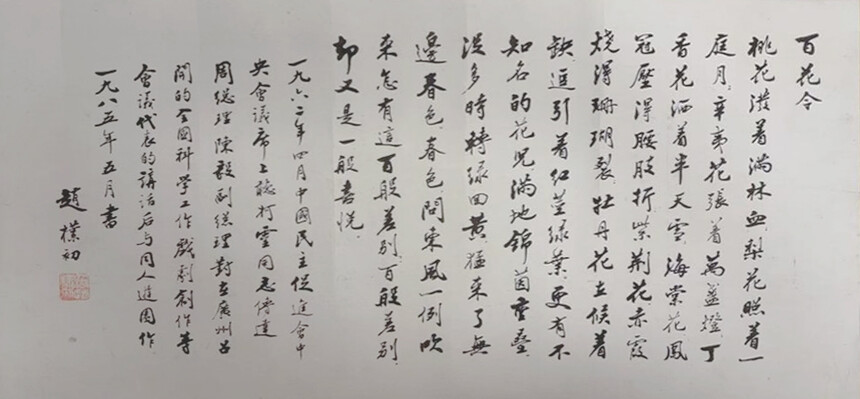 百花令
桃花潑着滿林血梨花照着一
庭月辛夷花張着萬盞燈丁
香花洒着半天雪海棠花鳳
冠壓得腰肢折紫荆花赤霞
燒得珊瑚裂牡丹花立候着
缺逗引着紅莖綠葉更有不
知名的花兒滿地錦茵重疊
没多時轉綠回黃猛來了無
邊春色春色問東風一例吹
来怎有這百般差别百般差别
却又是一般喜悦
一九六二年四月中國民主促進會中
央會議席上聽柯靈同志傳達
周總理陳毅副總理對在廣州召
開的全國科学工作戲劇創作等
會議代表的講話后与同人遊園作
一九八五年五月書
趙樸初